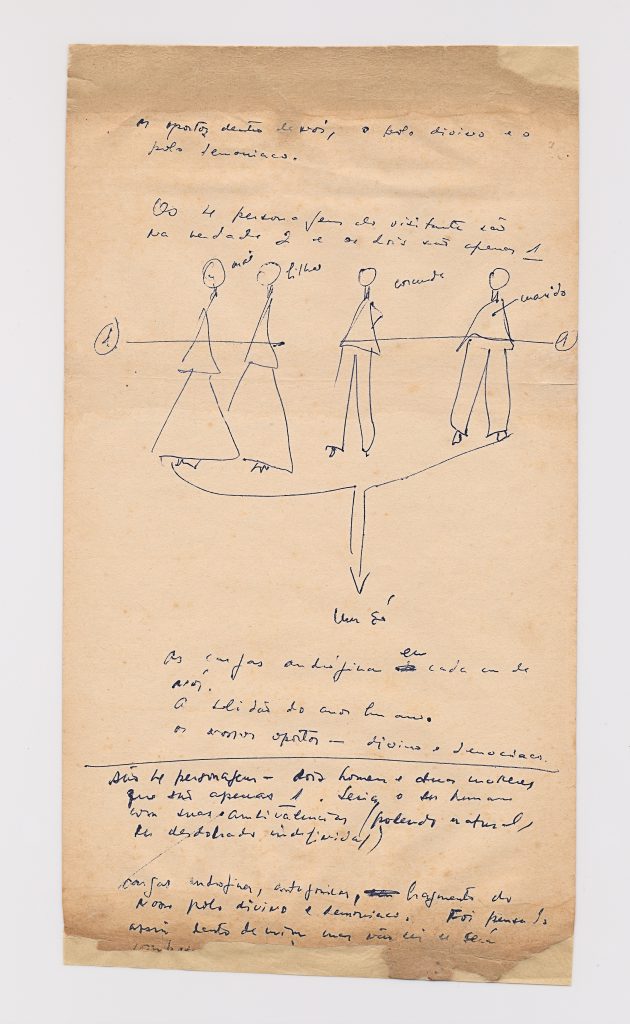 os opostos dentro de nós, o polo divino e o
polo demoniaco.
Os 4 personagens do visitante são
na verdade 2 e os dois são apenas 1
mãe
filha
corcunda
marido
1
Um só
As cargas andróginas em cada um de
nós.
A solidão do amor humano.
os nossos opostos — divino e demoniaco.
são 4 personagens — dois homens e duas mulheres
que são apenas 1. Seria o ser humano
com suas antivalências (podendo natural,
ser desdobrado indefinida/)
cargas andróginas, antagonicas, fragmentos do
nosso polo divino e demoniaco. Foi pensado
assim dentro de mim mas não sei se será